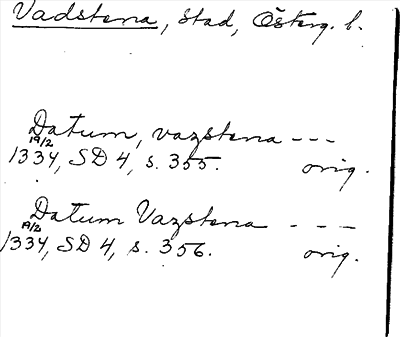 Vadstena, stad, Österg. l.
Datum, vazstena ---
19/2
1334, SD 4, s. 355. orig.
Datum Vazstena ---
19/2
1334, SD 4, s. 356. orig.